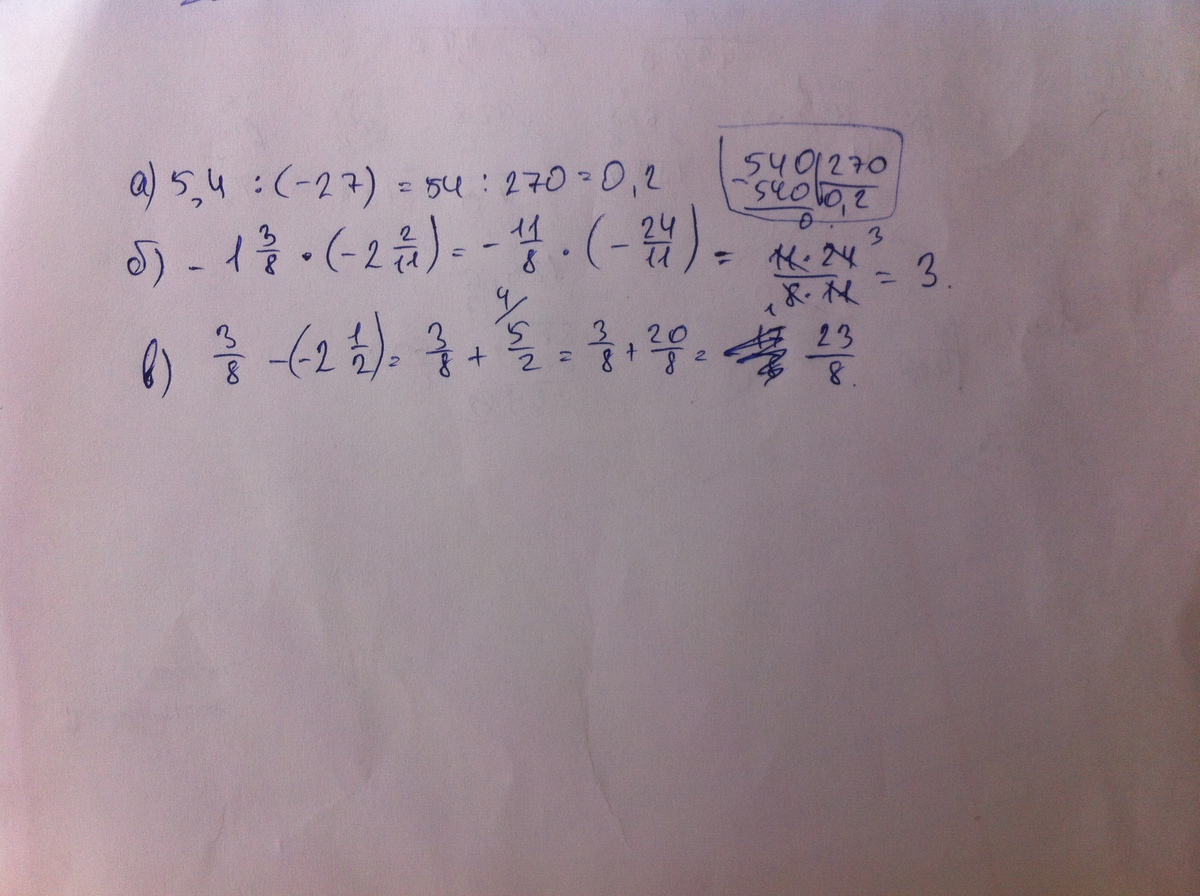 а) 5,4 : (-27) = 54 : 270 = 0,2
540 | 270
- 540 | 0,2
0
б) - 1 3/8 · (-2 2/11) = - 11/8 · (- 24/11) = 11·24 3 / 1 8·11 = 3.
в) 3/8 - (-2 1/2) = 3/8 + 4/ 5/2 = 3/8 + 20/8 = 23/8.